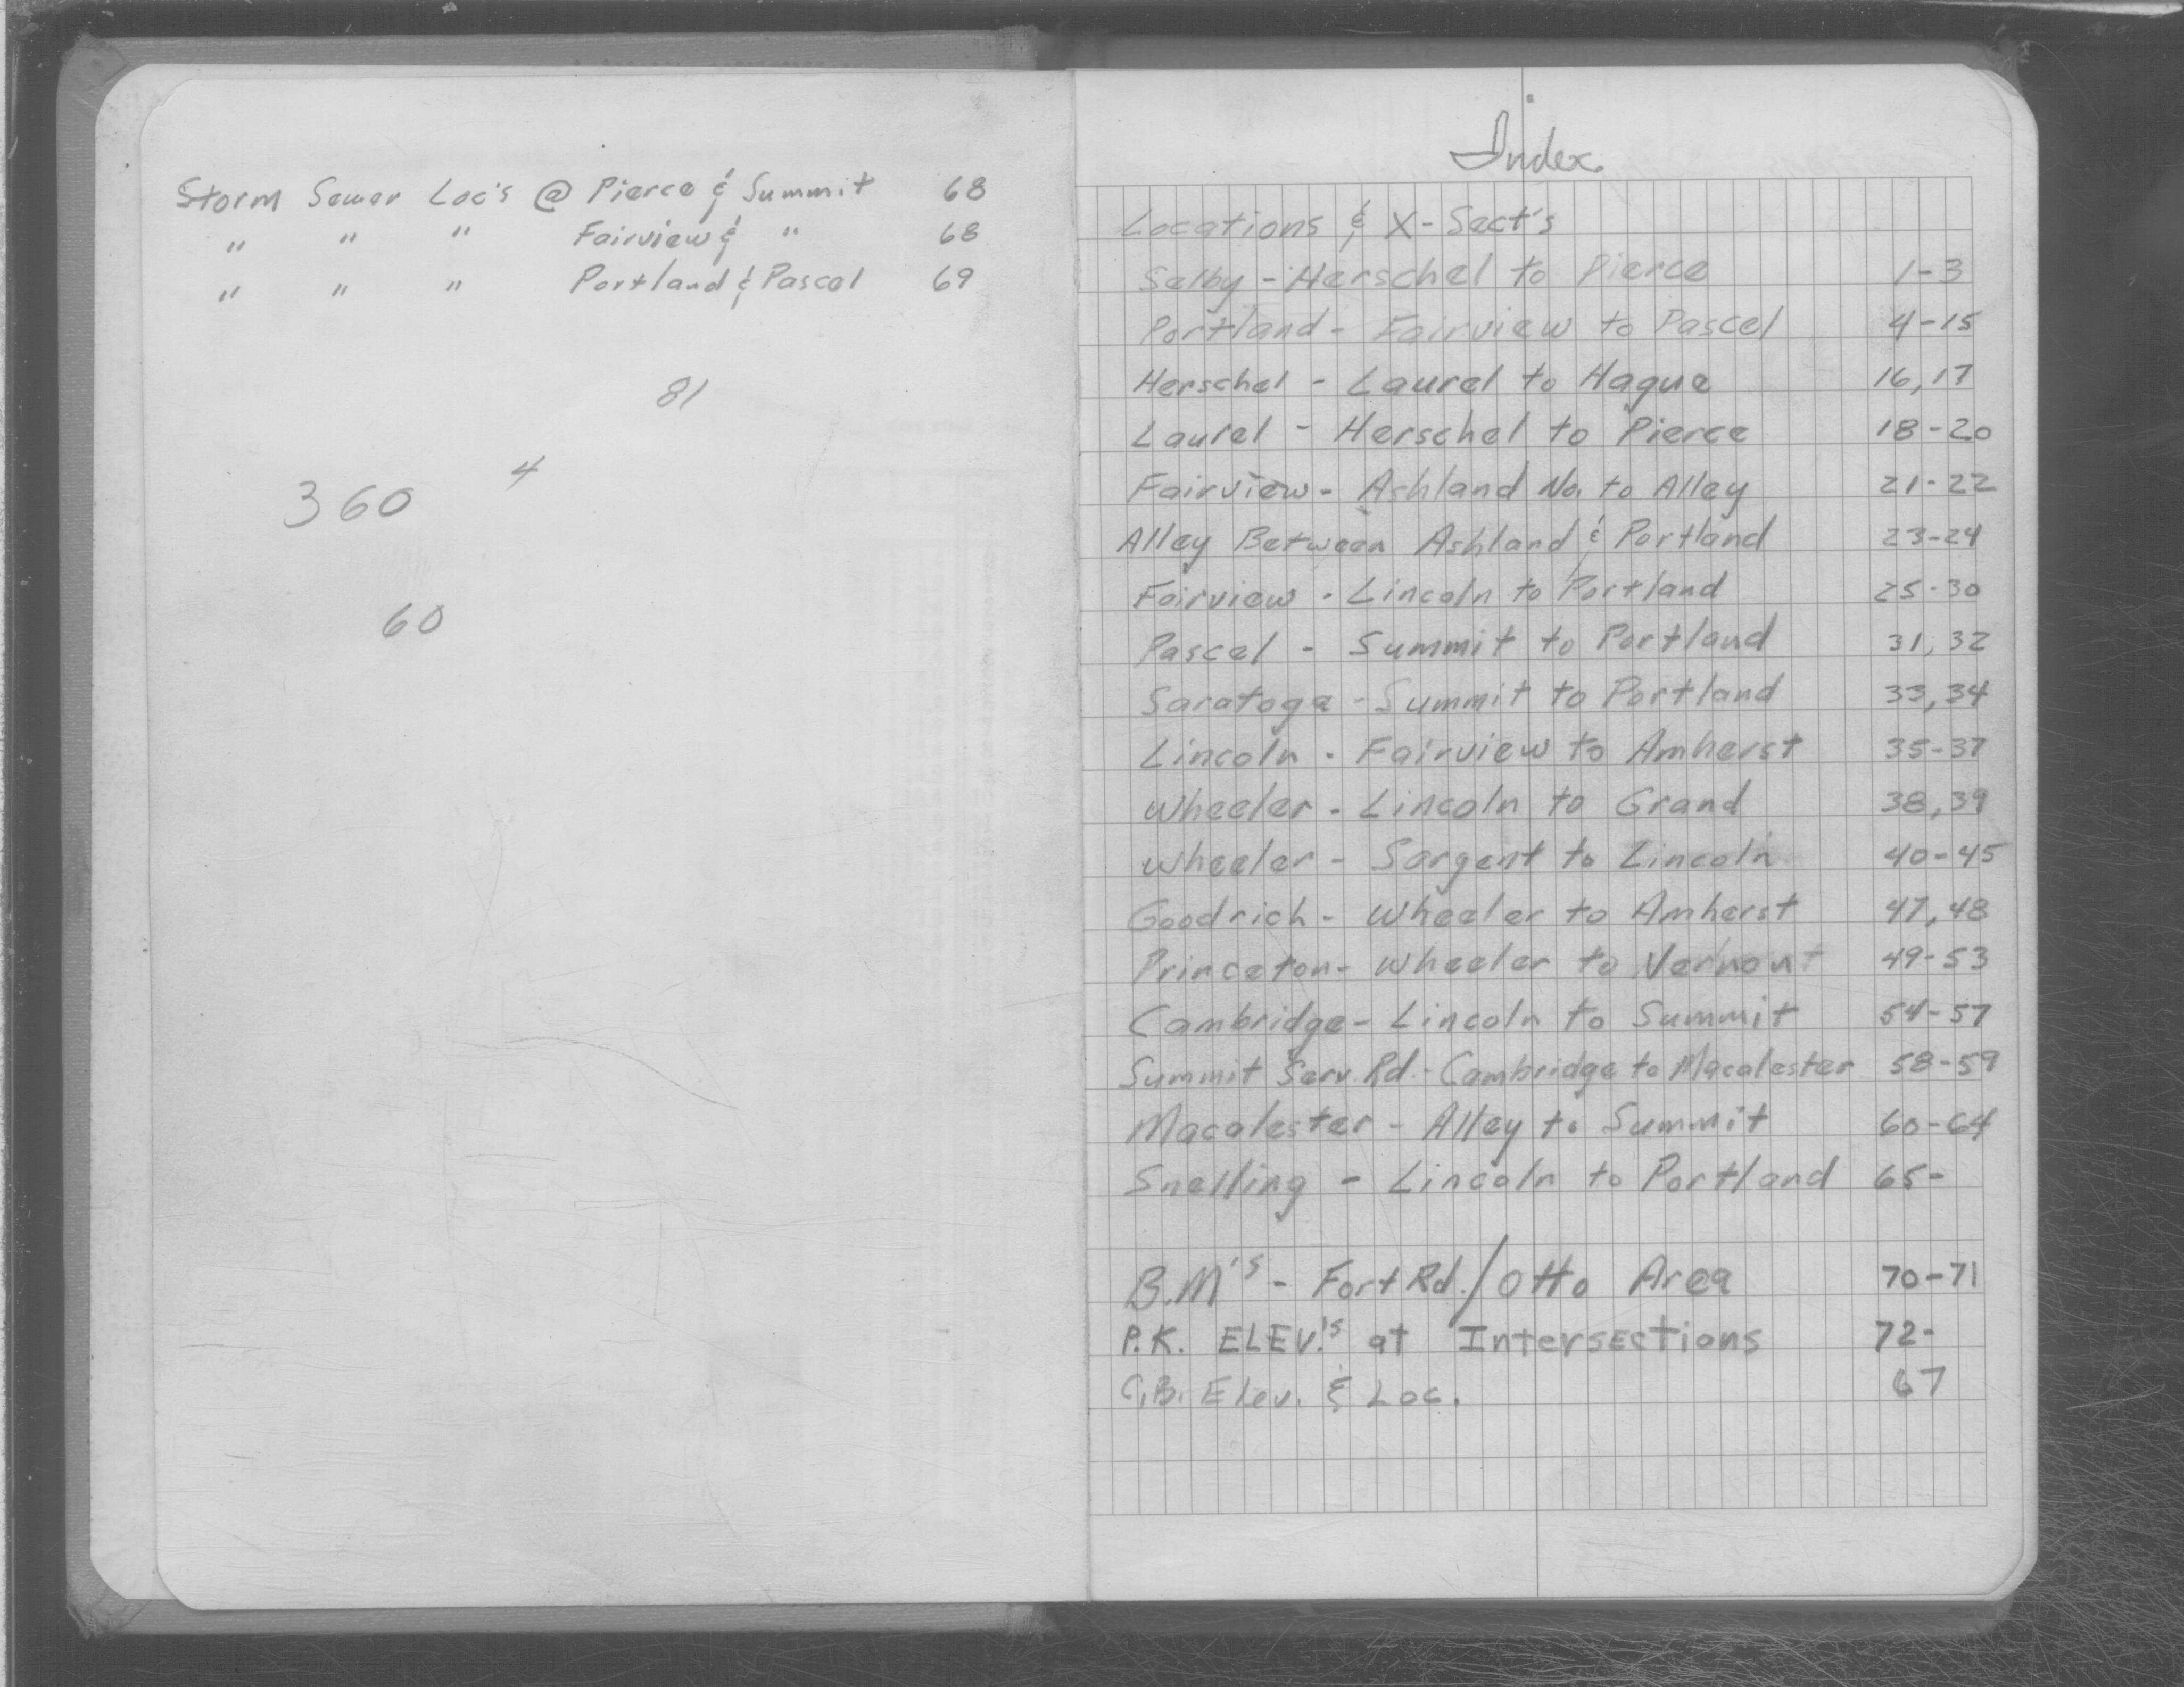 Storm Sewer Loc's @ Pierce & Summit 68
" " " Fairview & " 68
" " " Portland & Pascal 69
81
4
360
60
Index
Locations & X-Sect's
Selby - Herschel to Pierce 1-3
Portland - Fairview to Pascel 4-15
Herschel - Laurel to Hague 16,17
Laurel - Herschel to Pierce 18-20
Fairview - Ashland No. to Alley 21-22
Alley Between Ashland & Portland 23-24
Fairview - Lincoln to Portland 25-30
Pascel - Summit to Portland 31,32
Saratoga - Summit to Portland 33,34
Lincoln - Fairview to Amherst 35-37
Wheeler - Lincoln to Grand 38,39
Wheeler - Sargent to Lincoln 40-45
Goodrich - Wheeler to Amherst 47,48
Princeton - Wheeler to Vernont 49-53
Cambridge - Lincoln to Summit 54-57
Summit Serv. Rd. - Cambridge to Macalester 58-59
Macalester - Alley to Summit 60-64
Snelling - Lincoln to Portland 65-
B.M's - Fort Rd./Otto Area 70-71
P.K. ELEV.'s at Intersections 72-
C.B. Elev. & Loc. 67